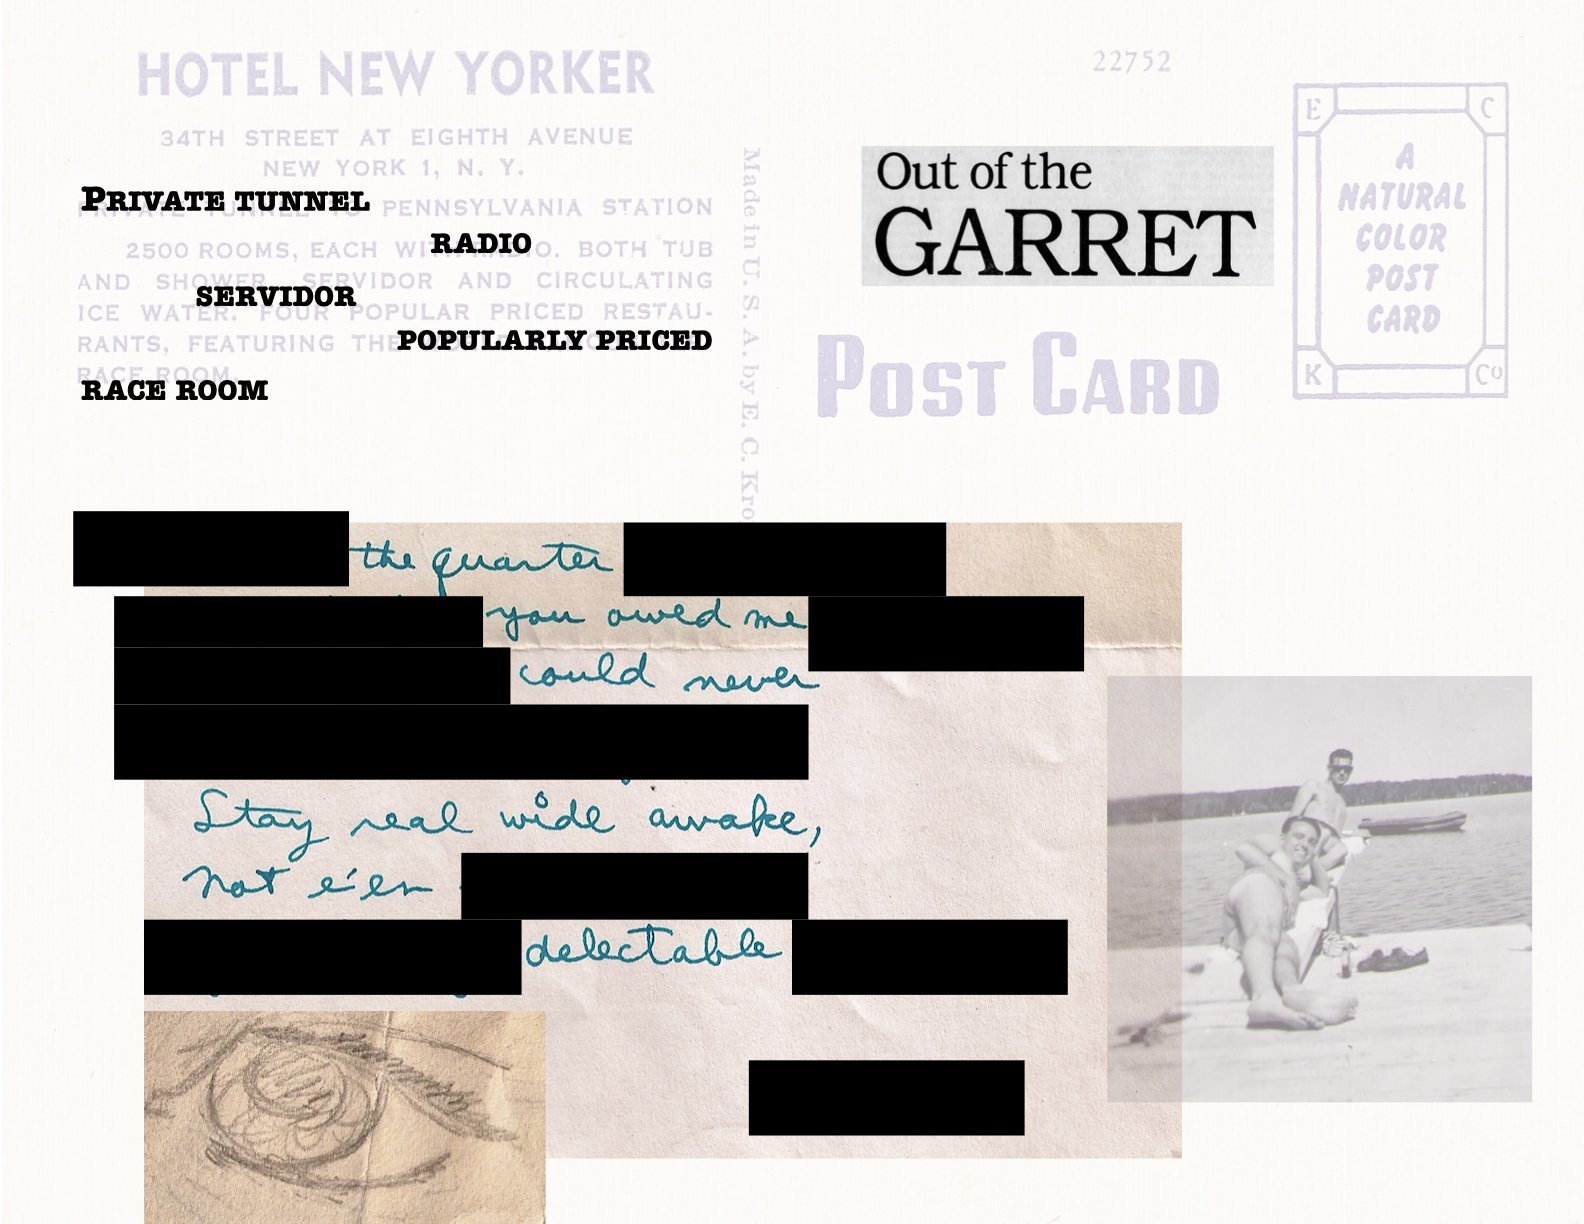 HOTEL NEW YORKER
34TH STREET AT EIGHTH AVENUE
NEW YORK 1, N. Y.
PRIVATE TUNNEL TO PENNSYLVANIA STATION
PRIVATE TUNNEL
2500 ROOMS, EACH WITH RADIO. BOTH TUB
RADIO
AND SHOWER, SERVIDOR AND CIRCULATING
SERVIDOR
ICE WATER. FOUR POPULAR PRICED RESTAU-
RANTS, FEATURING THE
POPULARLY PRICED
RACE ROOM
RACE ROOM
Made in U. S. A. by E. C. Kro
22752
Out of the
GARRET
POST CARD
E C
A
NATURAL
COLOR
POST
CARD
K Co
the quarter
you owed me
could never
Stay real wide awake,
not e'en
delectable